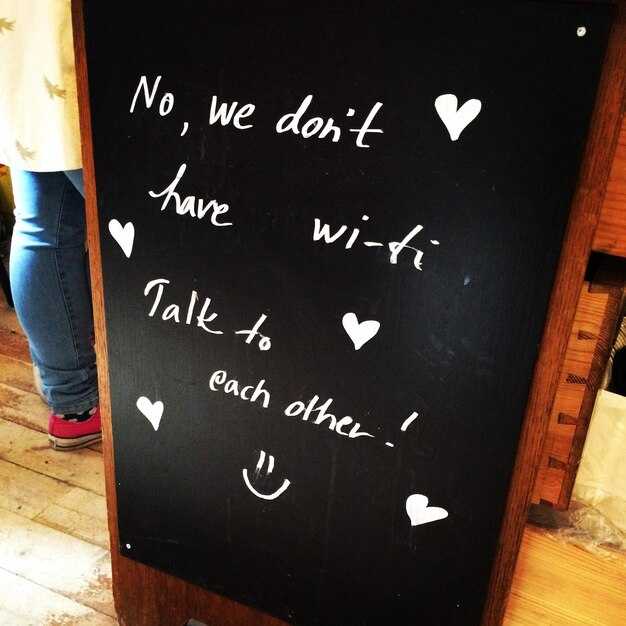 No, we don't
have wi-fi
Talk to
each other!